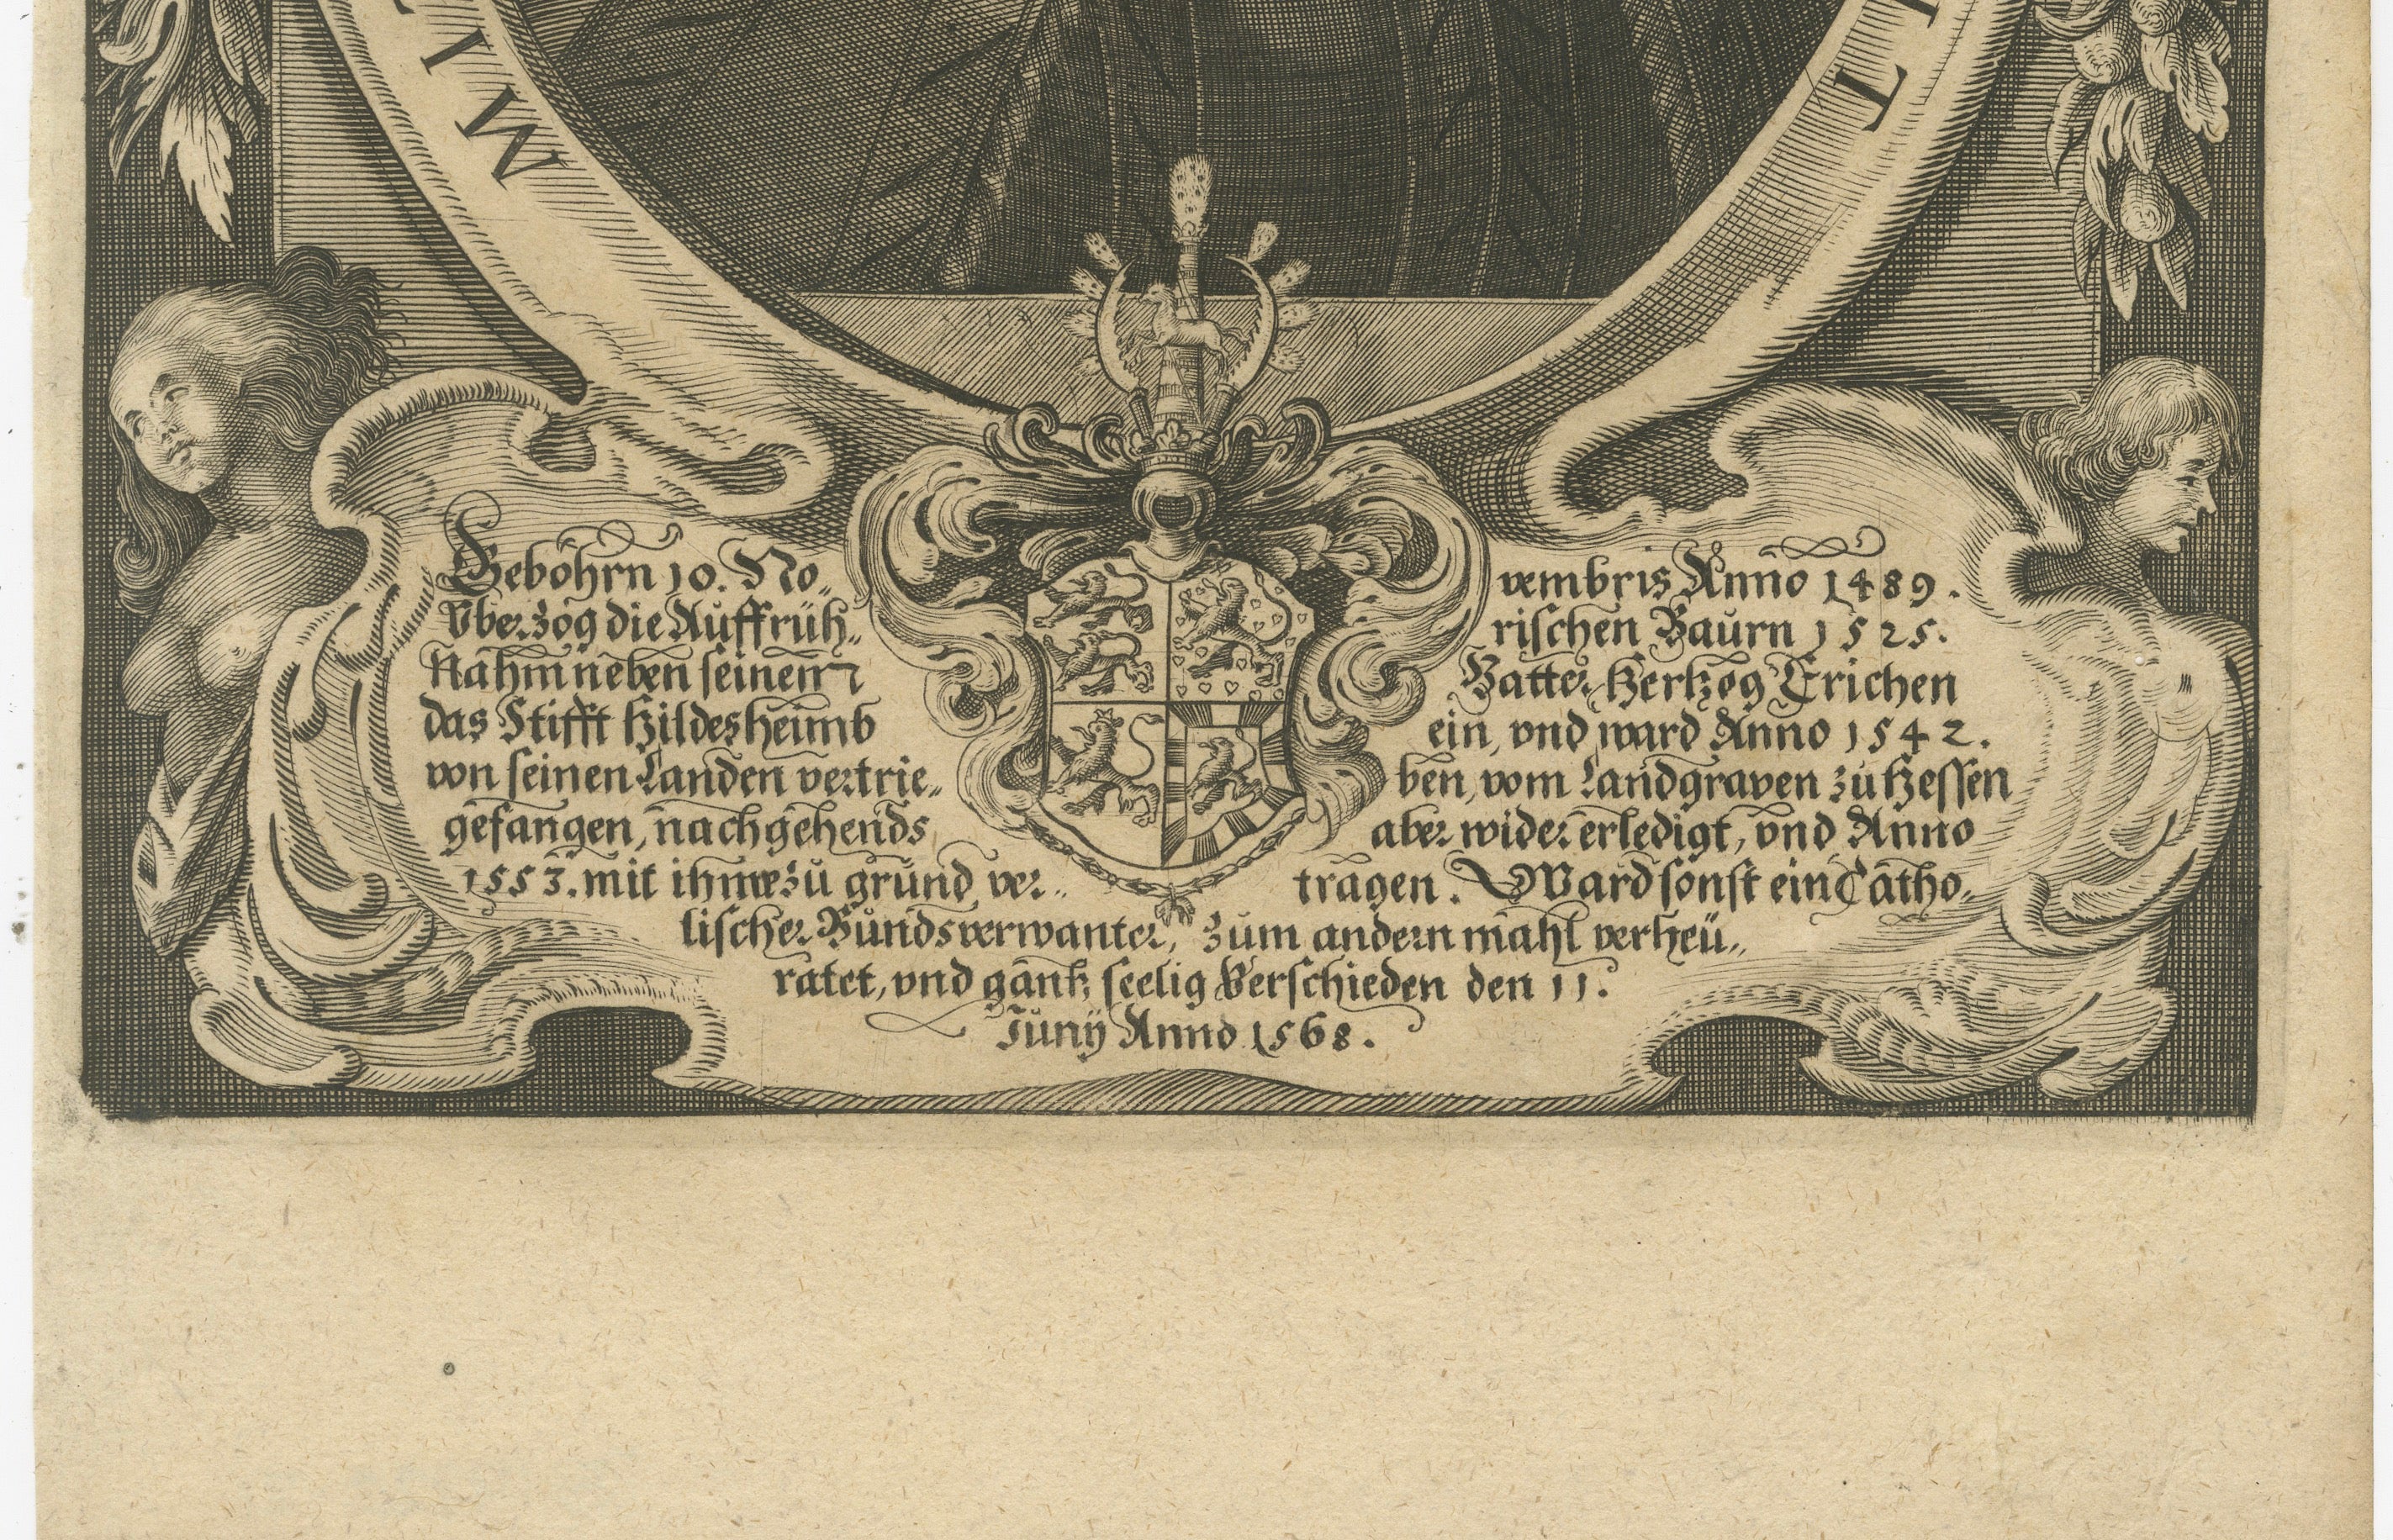 MI
LT
Gebohrn 10. No„ vembris Anno 1489.
Vberzog die Auffrüh„ rischen Baurn 1525.
Nahm neben seinem Vatter Hertzog Erichen
das Stifft Hildesheimb ein, vnd ward Anno 1542.
von seinen Landen vertrie„ ben, vom Landgraven zu Hessen
gefangen, nachgehends aber wider erledigt, vnd Anno
1553. mit ihme zu grund ver„ tragen. Ward sonst ein Catho„
lischer Bundsverwanter, zum andern mahl verheü„
ratet, vnd gantz seelig Verschieden den 11.
Junÿ Anno 1568.